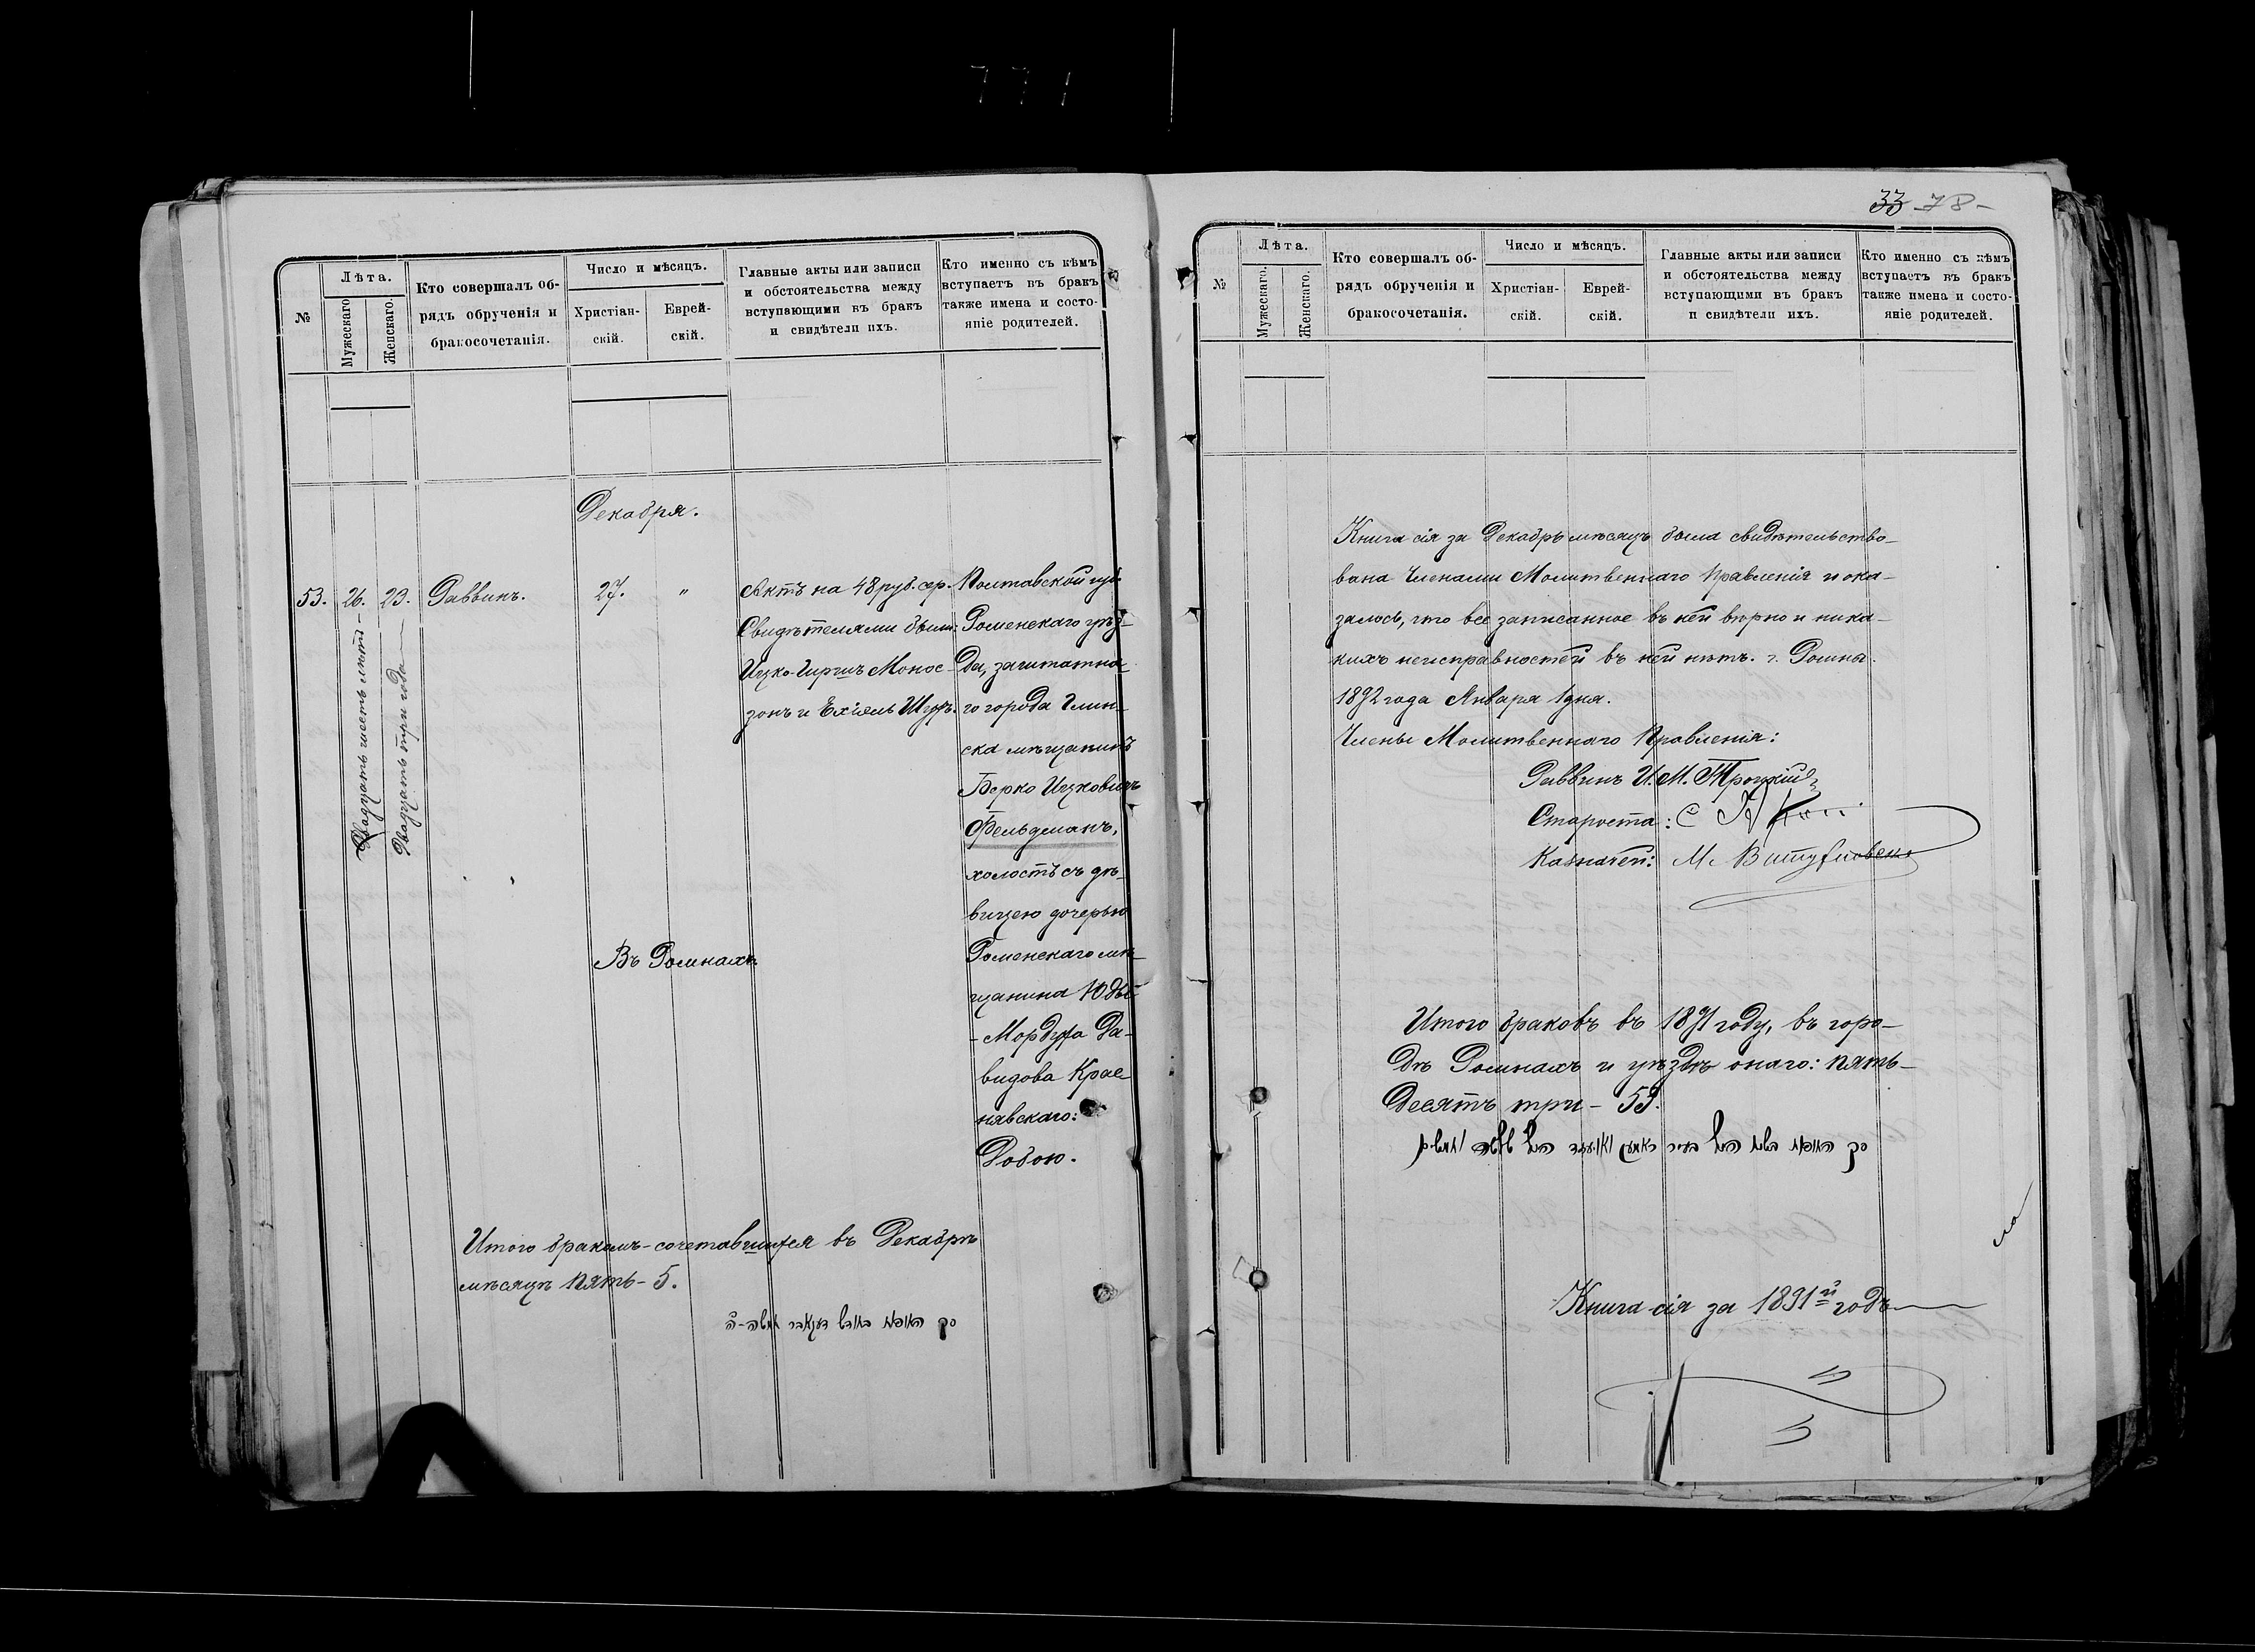 771
№
Лѣта.
Мужескаго
Женскаго.
Кто совершалъ об-
рядъ обрученія и
бракосочетанія.
Число и мѣсяцъ.
Христіан-
скій.
Еврей-
скій.
Главные акты или записи
и обстоятельства между
вступающими въ бракъ
и свидѣтели ихъ.
Кто именно съ кѣмъ
вступаетъ въ бракъ
также имена и состо-
яніе родителей.
Декабря.
53. 26. 23. Раввинъ. 27. "
Двадцать шесть лѣтъ
Двадцать три года
Актъ на 48 руб. сер.
Свидѣтелями были:
Ицко-Гиршъ Монос-
зонъ и Ехіель
Полтавской губ.
Роменскаго уѣз-
да, заштатна-
го города Глин-
ска мѣщанинъ
Берко Ицковичъ
Фельдманъ,
холостъ съ дѣ-
вицею дочерью
Роменскаго мѣ-
щанина Юды
-Мордуха Да-
видова Крас-
нявскаго:
Добою.
Въ Ромнахъ.
Итого бракомъ-сочетавшихся въ Декабрѣ
мѣсяцѣ пять-5.
סך החופות בחודש דעקאבר חמשה-ה
33 78-
№
Лѣта.
Мужескаго.
Женскаго.
Кто совершалъ об-
рядъ обрученія и
бракосочетанія.
Число и мѣсяцъ.
Христіан-
скій.
Еврей-
скій.
Главные акты или записи
и обстоятельства между
вступающими въ бракъ
и свидѣтели ихъ.
Кто именно съ кѣмъ
вступаетъ въ бракъ
также имена и состо-
яніе родителей.
Книга сія за Декабрь мѣсяцъ была свидѣтельство-
вана Членами Молитвеннаго Правленія и ока-
залось, что все записанное въ ней вѣрно и ника-
кихъ неисправностей въ ней нѣтъ. г. Ромны.
1892 года Января 1 дня.
Члены Молитвеннаго Правленія:
Раввинъ И. М. Троцкій
Староста:
Казначей: М.
Итого браковъ въ 1891 году, въ горо-
дѣ Ромнахъ и уѣздѣ онаго: пять-
десятъ три - 53.
סך החופות בשנת
Книга сія за 1891й годъ